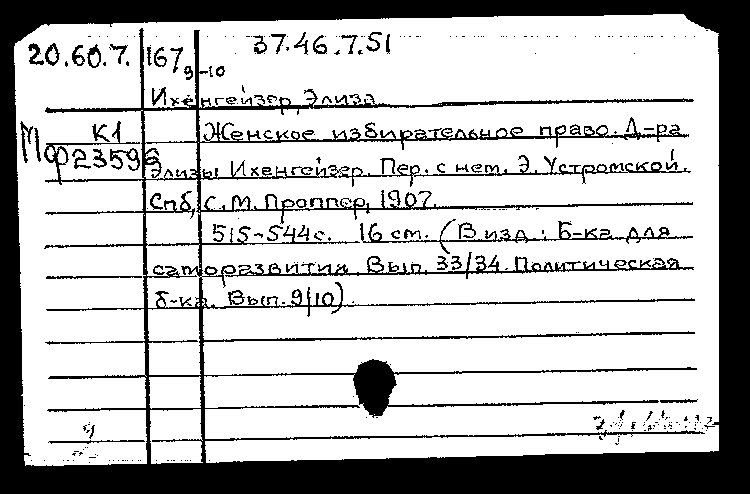 20.60.7. 167 9-10 37.46.7.51
Ихенгейзер, Элиза
К1 Женское избирательное право. Д-ра
Мф 23596 Элизы Ихенгейзер. Пер. с нем. Э. Устромской.
Спб, С. М. Проппер, 1907.
515-544 с. 16 см. (В изд.: Б-ка для
саморазвития. Вып. 33/34. Политическая
б-ка. Вып. 9/10).